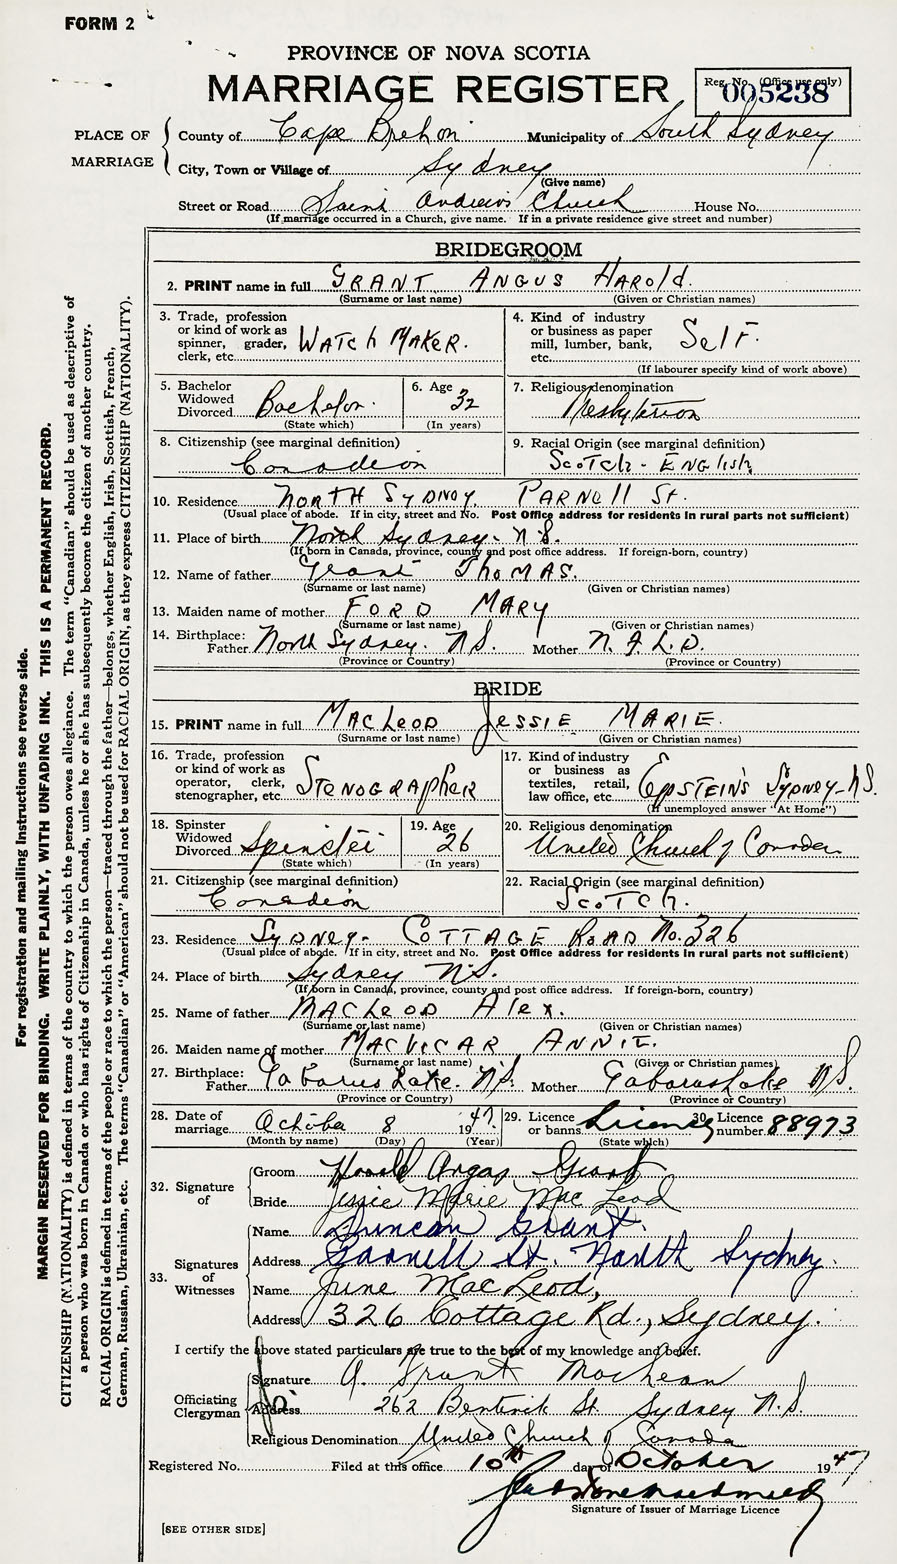 FORM 2
PROVINCE OF NOVA SCOTIA
MARRIAGE REGISTER
Reg. No. (Office use only)
005238
PLACE OF MARRIAGE
County of Cape Breton Municipality of South Sydney
City, Town or Village of Sydney
(Give name)
Street or Road Saint Andrews Church House No.
(If marriage occurred in a Church, give name. If in a private residence give street and number)
BRIDEGROOM
2. PRINT name in full GRANT ANGUS HAROLD.
(Surname or last name) (Given or Christian names)
3. Trade, profession or kind of work as spinner, grader, clerk, etc. WATCH MAKER.
4. Kind of industry or business as paper mill, lumber, bank, etc. SelF.
(If labourer specify kind of work above)
5. Bachelor Widowed Divorced Bachelor.
(State which)
6. Age 32
(In years)
7. Religious denomination Presbyterian
8. Citizenship (see marginal definition)
Canadian
9. Racial Origin (see marginal definition)
SCOTCH - ENGlish
10. Residence NORTH SYDNEY, PARNEll St.
(Usual place of abode. If in city, street and No. Post Office address for residents in rural parts not sufficient)
11. Place of birth North Sydney. N.S.
(If born in Canada, province, county and post office address. If foreign-born, country)
12. Name of father Grant THOMAS.
(Surname or last name) (Given or Christian names)
13. Maiden name of mother FORD MARY
(Surname or last name) (Given or Christian names)
14. Birthplace: Father North Sydney. N.S. Mother N.F.L.D.
(Province or Country) (Province or Country)
BRIDE
15. PRINT name in full MACLEOD JESSIE MARIE.
(Surname or last name) (Given or Christian names)
16. Trade, profession or kind of work as operator, clerk, stenographer, etc. STENOGRAPHER
17. Kind of industry or business as textiles, retail, law office, etc. EPSTEIN'S SYDNEY-N.S.
(If unemployed answer "At Home")
18. Spinster Widowed Divorced Spinster
(State which)
19. Age 26
(In years)
20. Religious denomination
United Church of Canada
21. Citizenship (see marginal definition)
Canadian
22. Racial Origin (see marginal definition)
SCOTCH.
23. Residence SYDNEY- COTTAGE ROAD No. 326
(Usual place of abode. If in city, street and No. Post Office address for residents in rural parts not sufficient)
24. Place of birth Sydney N.S.
(If born in Canada, province, county and post office address. If foreign-born, country)
25. Name of father MACLEOD Alex.
(Surname or last name) (Given or Christian names)
26. Maiden name of mother MACVICAR ANNIE.
(Surname or last name) (Given or Christian names)
27. Birthplace: Father Gabarus Lake. N.S. Mother Gabarus Lake N.S.
(Province or Country) (Province or Country)
28. Date of marriage October 8 1947
(Month by name) (Day) (Year)
29. Licence or banns License
(State which)
30. Licence number. 88973
32. Signature of
Groom Harold Angus Grant
Bride Jessie Marie MacLeod
33. Signatures of Witnesses
Name Duncan Grant.
Address Parnell St. North Sydney.
Name June MacLeod,
Address 326 Cottage Rd., Sydney.
I certify the above stated particulars are true to the best of my knowledge and belief.
Officiating Clergyman
Signature A. Grant MacLean
Address 262 Bentinck St. Sydney N.S.
Religious Denomination United Church of Canada
Registered No. Filed at this office 10th day of October 1947
Signature of Issuer of Marriage Licence
[SEE OTHER SIDE]
For registration and mailing instructions see reverse side.
MARGIN RESERVED FOR BINDING. WRITE PLAINLY, WITH UNFADING INK. THIS IS A PERMANENT RECORD.
CITIZENSHIP (NATIONALITY) is defined in terms of the country to which the person owes allegiance. The term "Canadian" should be used as descriptive of
a person who was born in Canada or who has rights of Citizenship in Canada, unless he or she has subsequently become the citizen of another country.
RACIAL ORIGIN is defined in terms of the people or race to which the person—traced through the father—belongs, whether English, Irish, Scottish, French,
German, Russian, Ukrainian, etc. The terms "Canadian" or "American" should not be used for RACIAL ORIGIN, as they express CITIZENSHIP (NATIONALITY).